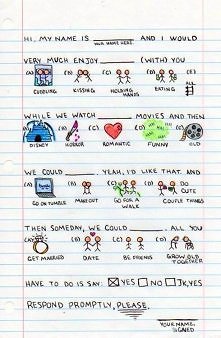 HI, MY NAME IS ________ AND I WOULD
YOUR NAME HERE.
VERY MUCH ENJOY ________ (WITH) YOU
(A) (B) (C) (D)
CUDDLING KISSING HOLDING HANDS EATING
WHILE WE WATCH ________ MOVIES AND THEN
(A) (B) (C) (D) (E)
DISNEY HORROR ROMANTIC FUNNY OLD
WE COULD ________. YEAH, I'D LIKE THAT. AND
(A) (B) (C) (D)
GO ON TUMBLR MAKEOUT GO FOR A WALK DO CUTE COUPLE THINGS
THEN SOMEDAY, WE COULD ________. ALL YOU
(A) (B) (C) (D)
GET MARRIED DATE BE FRIENDS GROW OLD TOGETHER
HAVE TO DO IS SAY: YES NO JK, YES
RESPOND PROMPTLY, PLEASE.
YOUR NAME,
SIGNED